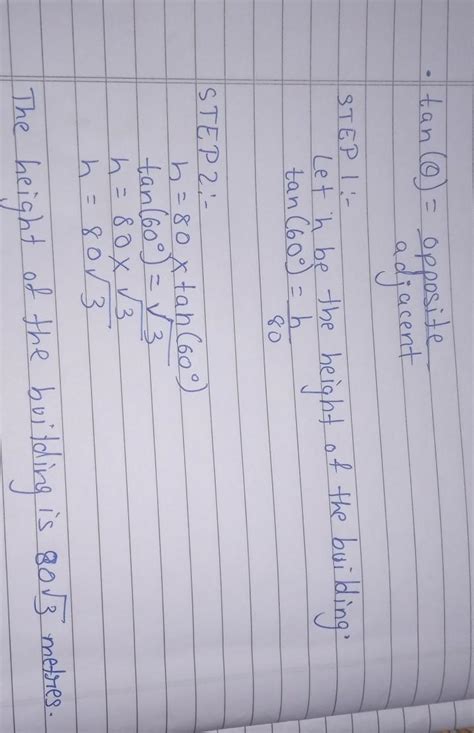 • tan(θ) = opposite
adjacent
STEP 1:-
Let 'h' be the height of the building.
tan(60°) = h
80
STEP 2:-
h = 80 × tan(60°)
tan(60°) = √3
h = 80 × √3
h = 80√3
The height of the building is 80√3 metres.